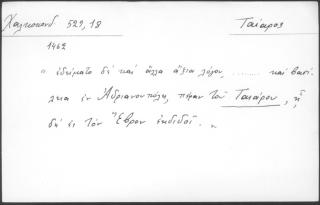 Χαλκοκονδ. 529, 18 Ταίαρος
1462
" ἐδείματο δὲ καὶ ἄλλα ἄξια λόγου ........ καὶ βασί-
λεια ἐν Ἀδριανουπόλει, πέραν τοῦ Ταιάρου, ᾗ
δὴ ἐς τὸν Ἕβρον ἐκδιδοῖ. "